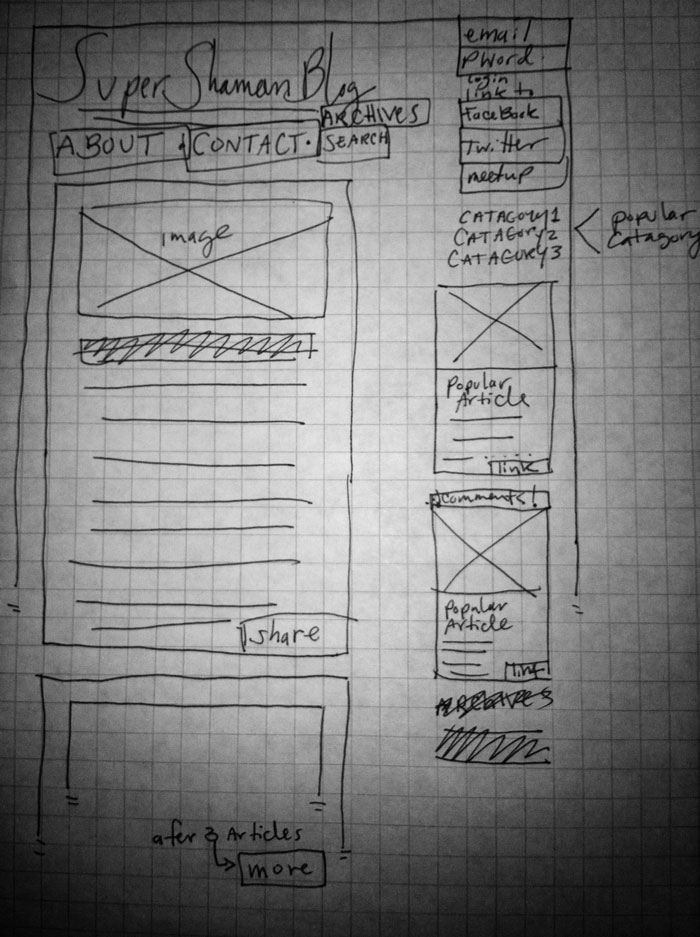 Super Shaman Blog
ARCHIVES
ABOUT
CONTACT
SEARCH
image
share
afer 3 Articles
more
email
PWord
login
link to
FaceBook
Twitter
meetup
CATAGORY1
CATAGORY2
CATAGORY3
popular
Catagory
Popular
Article
link
Comments!
Popular
Article
link